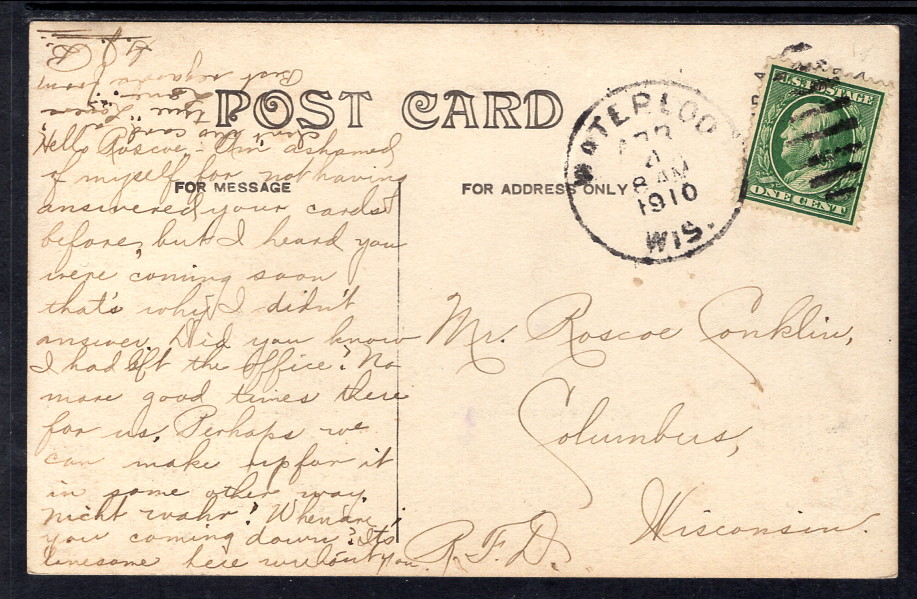 POST CARD
FOR MESSAGE
FOR ADDRESS ONLY
WATERLOO
APR
4
8 AM
1910
WIS.
U.S. POSTAGE
ONE CENT
Hello Roscoe:- Am ashamed
of myself for not having
answered your cards
before, but I heard you
were coming soon
that's why I didn't
answer. Did you know
I had left the office? No
more good times there
for us. Perhaps we
can make up for it
in some other way,
nicht wahr? When are
you coming down? It's
lonesome here without you.
Ain't this card a
true "Lovers
Best regards from
Mr. Roscoe Conklin,
Columbus,
Wisconsin.
R. F. D.